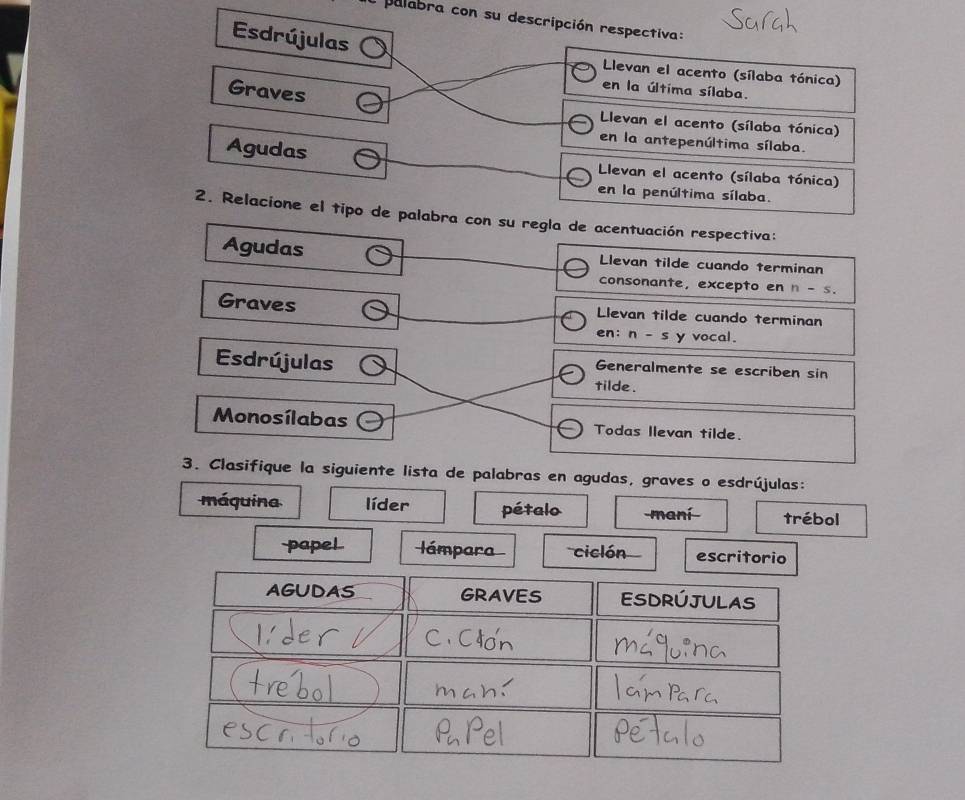 palabra con su descripción respectiva:
Sarah
Esdrújulas
Graves
Agudas
Llevan el acento (sílaba tónica)
en la última sílaba.
Llevan el acento (sílaba tónica)
en la antepenúltima sílaba.
Llevan el acento (sílaba tónica)
en la penúltima sílaba.
2. Relacione el tipo de palabra con su regla de acentuación respectiva:
Agudas
Graves
Esdrújulas
Monosílabas
Llevan tilde cuando terminan
consonante, excepto en n - s.
Llevan tilde cuando terminan
en: n - s y vocal.
Generalmente se escriben sin
tilde.
Todas llevan tilde.
3. Clasifique la siguiente lista de palabras en agudas, graves o esdrújulas:
máquina líder pétalo maní trébol
papel lámpara ciclón escritorio
AGUDAS GRAVES ESDRÚJULAS
líder ciclón máquina
trebol maní lámpara
escritorio papel pétalo